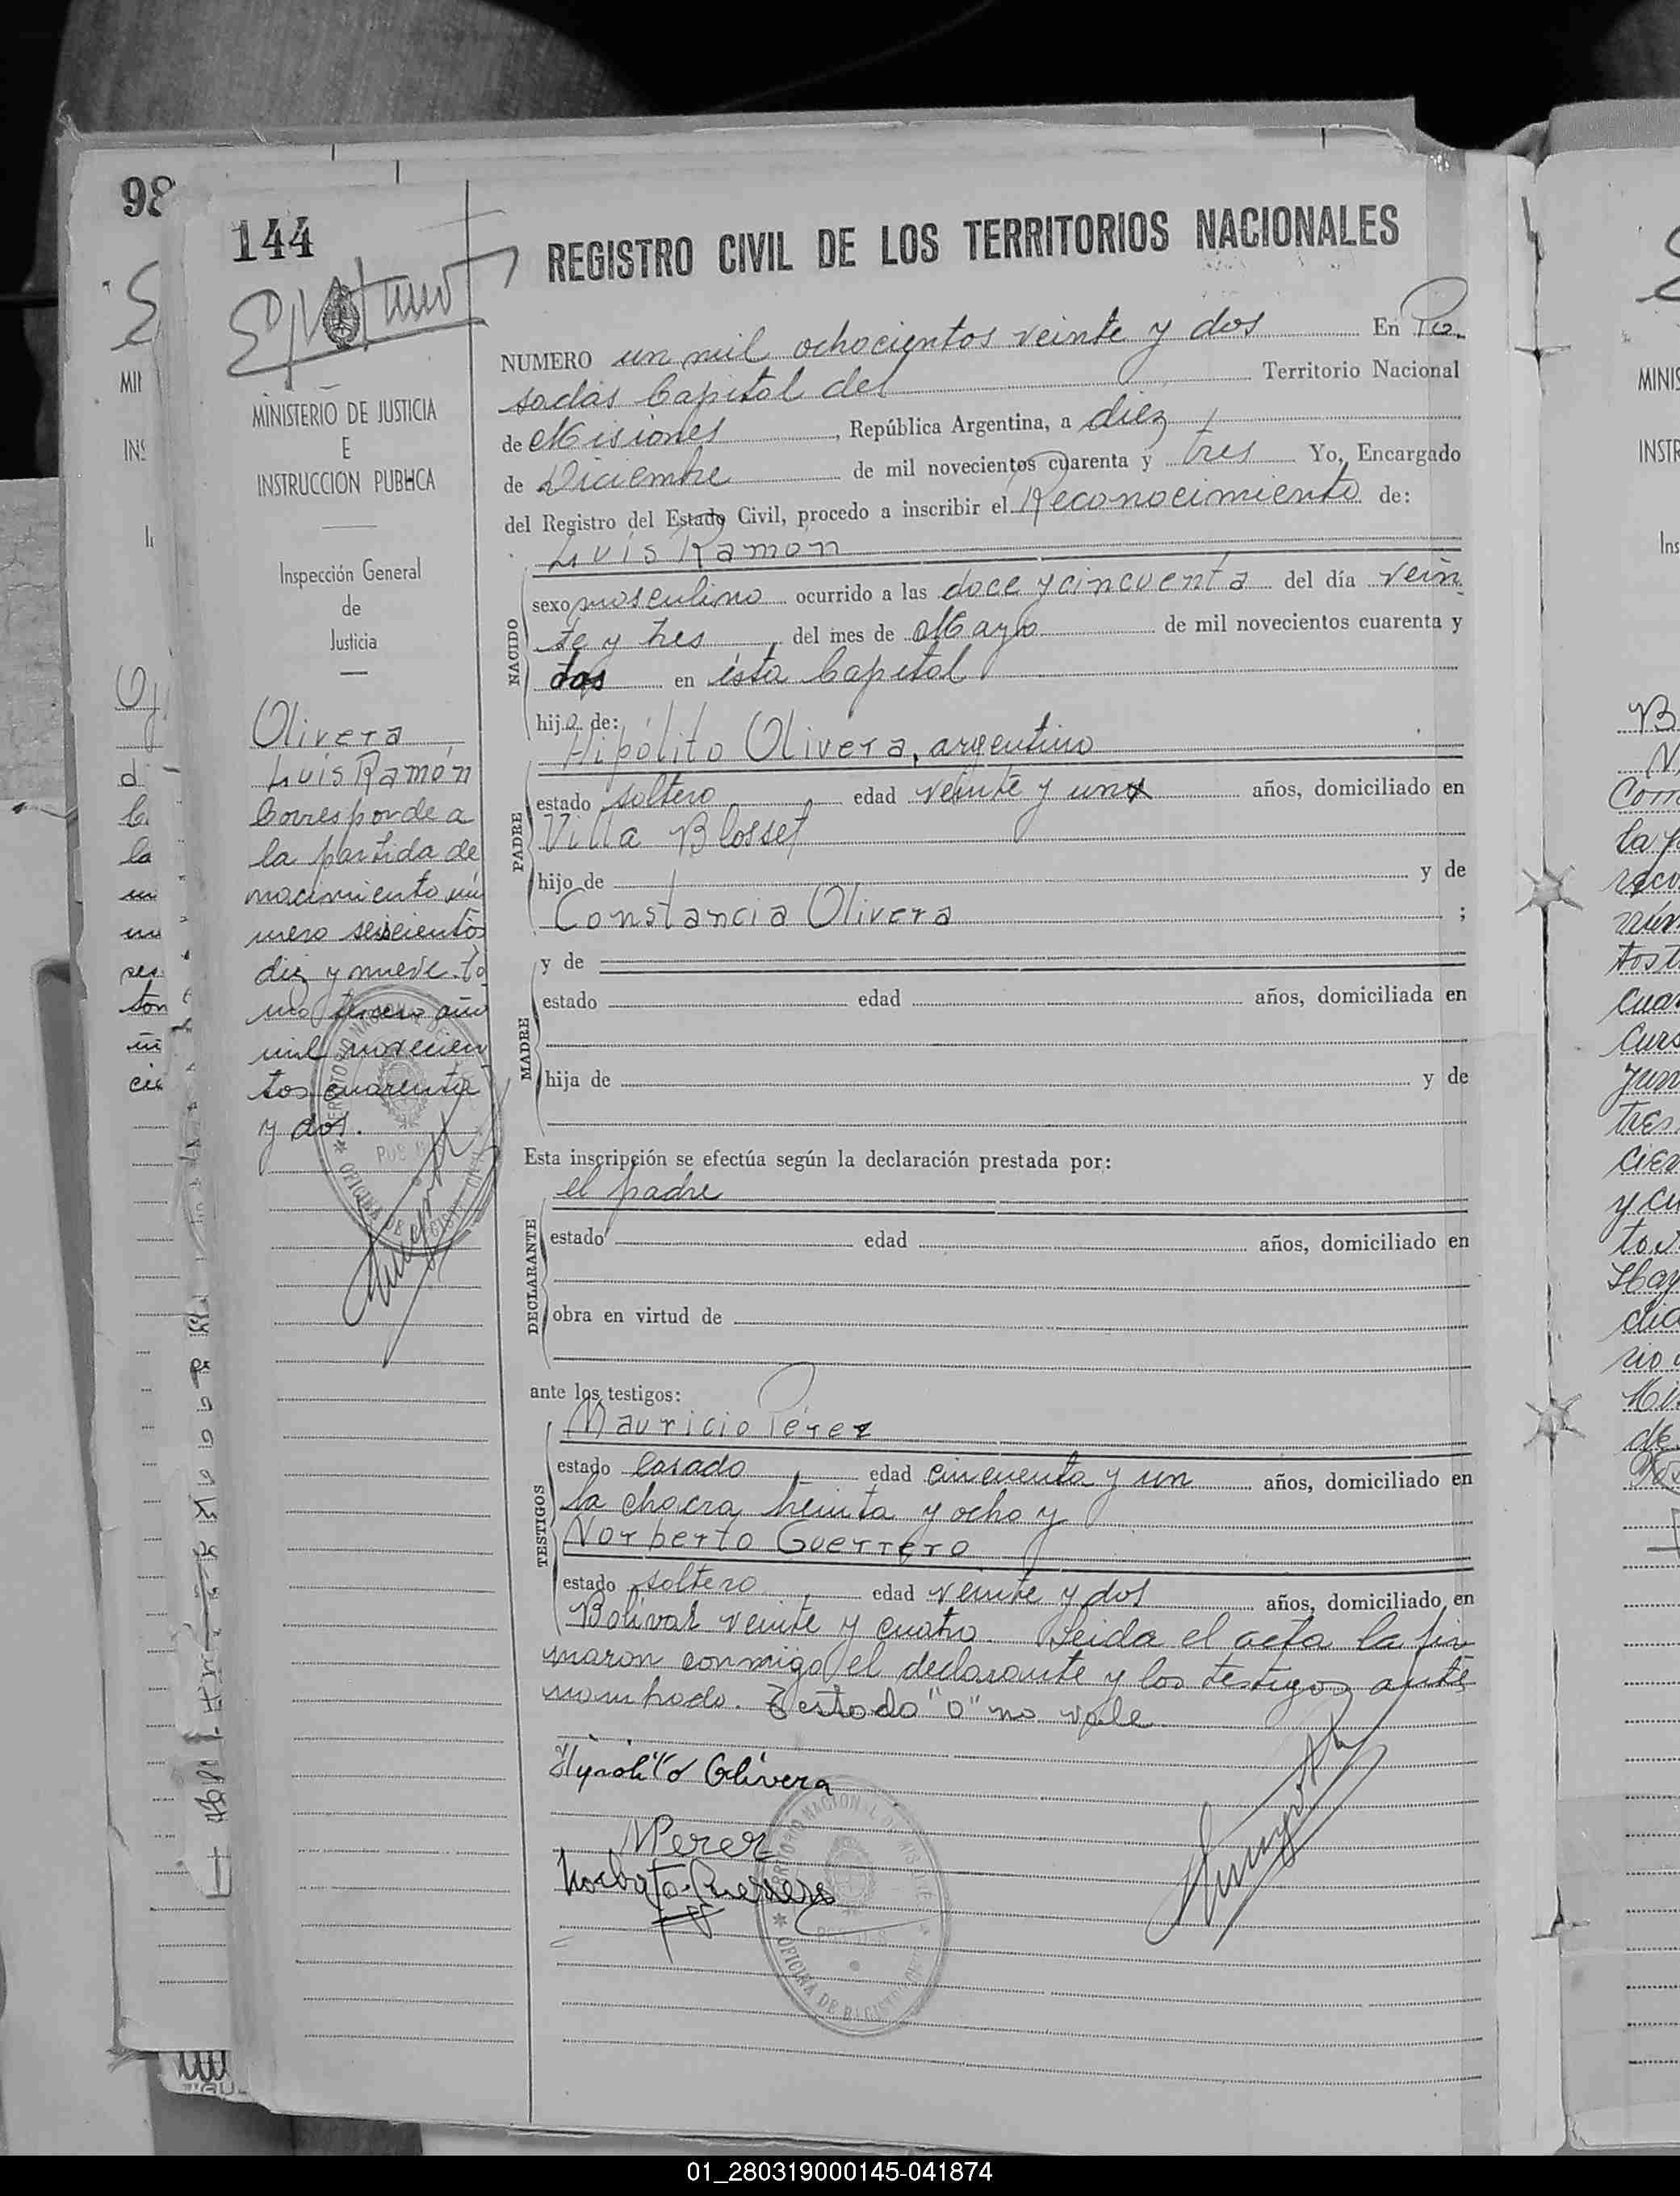 98
144
REGISTRO CIVIL DE LOS TERRITORIOS NACIONALES
MINISTERIO DE JUSTICIA
E
INSTRUCCION PUBLICA
Inspección General
de
Justicia
Olivera
Luis Ramón
Corresponde a
la partida de
nacimiento nú
mero seiscientos
diez y nueve to
mo tercero año
mil novecien
tos cuarenta
y dos.
NUMERO un mil ochocientos veinte y dos En Po
sadas Capital del Territorio Nacional
de Misiones, República Argentina, a diez
de Diciembre de mil novecientos cuarenta y tres Yo, Encargado
del Registro del Estado Civil, procedo a inscribir el Reconocimiento de:
Luis Ramón
NACIDO
sexo masculino ocurrido a las doce y cincuenta del día vein
te y tres del mes de Mayo de mil novecientos cuarenta y
dos en ésta Capital
hijo de:
Hipólito Olivera, argentino
PADRE
estado soltero edad veinte y uno años, domiciliado en
Villa Blosset
hijo de y de
Constancia Olivera ;
y de
MADRE
estado edad años, domiciliada en
hija de y de
Esta inscripción se efectúa según la declaración prestada por:
el padre
DECLARANTE
estado edad años, domiciliado en
obra en virtud de
ante los testigos:
Mauricio Pérez
TESTIGOS
estado Casado edad cincuenta y un años, domiciliado en
la chacra treinta y ocho y
Norberto Guerrero
estado soltero edad veinte y dos años, domiciliado en
Bolívar veinte y cuatro. Leida el acta la fir
maron conmigo el declarante y los testigos ante
nombrado. Testado "o" no vale
Hipolito Olivera
MPerez
Norberto Guerrero
OFICINA DE REGISTRO CIVIL
01_280319000145-041874